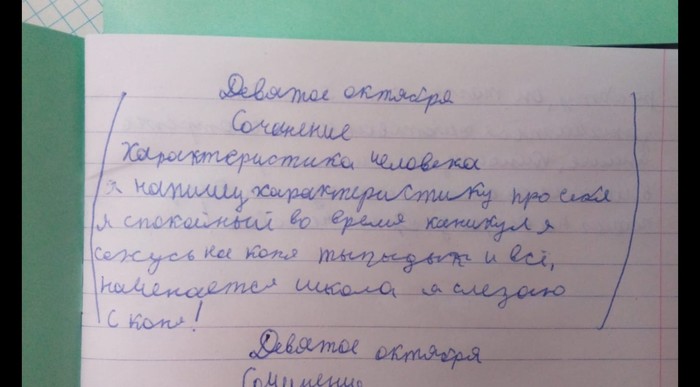 Девятое октября
Сочинение
Характеристика человека
я напишу характеристику про себя
я спокойный во время каникул я
сажусь на коня тыпыдык и всё,
наченается школа я слезаю
с коня!
Девятое октября
Сочинение